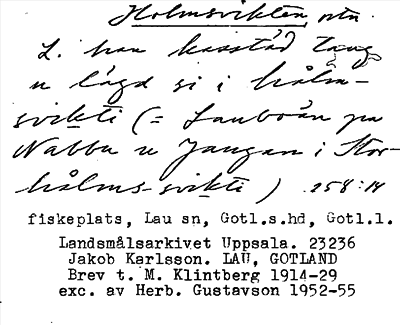 Holmsvikten, otn.
L. han kasstäd tang
u lägd si i hålm-
svikti (= Lauboån pa
Nabbu u Jaugan i Stor-
hålms-svikti) 258:14
fiskeplats, Lau sn, Gotl.s.hd, Gotl.l.
Landsmålsarkivet Uppsala. 23236
Jakob Karlsson. LAU, GOTLAND
Brev t. M. Klintberg 1914-29
exc. av Herb. Gustavson 1952-55